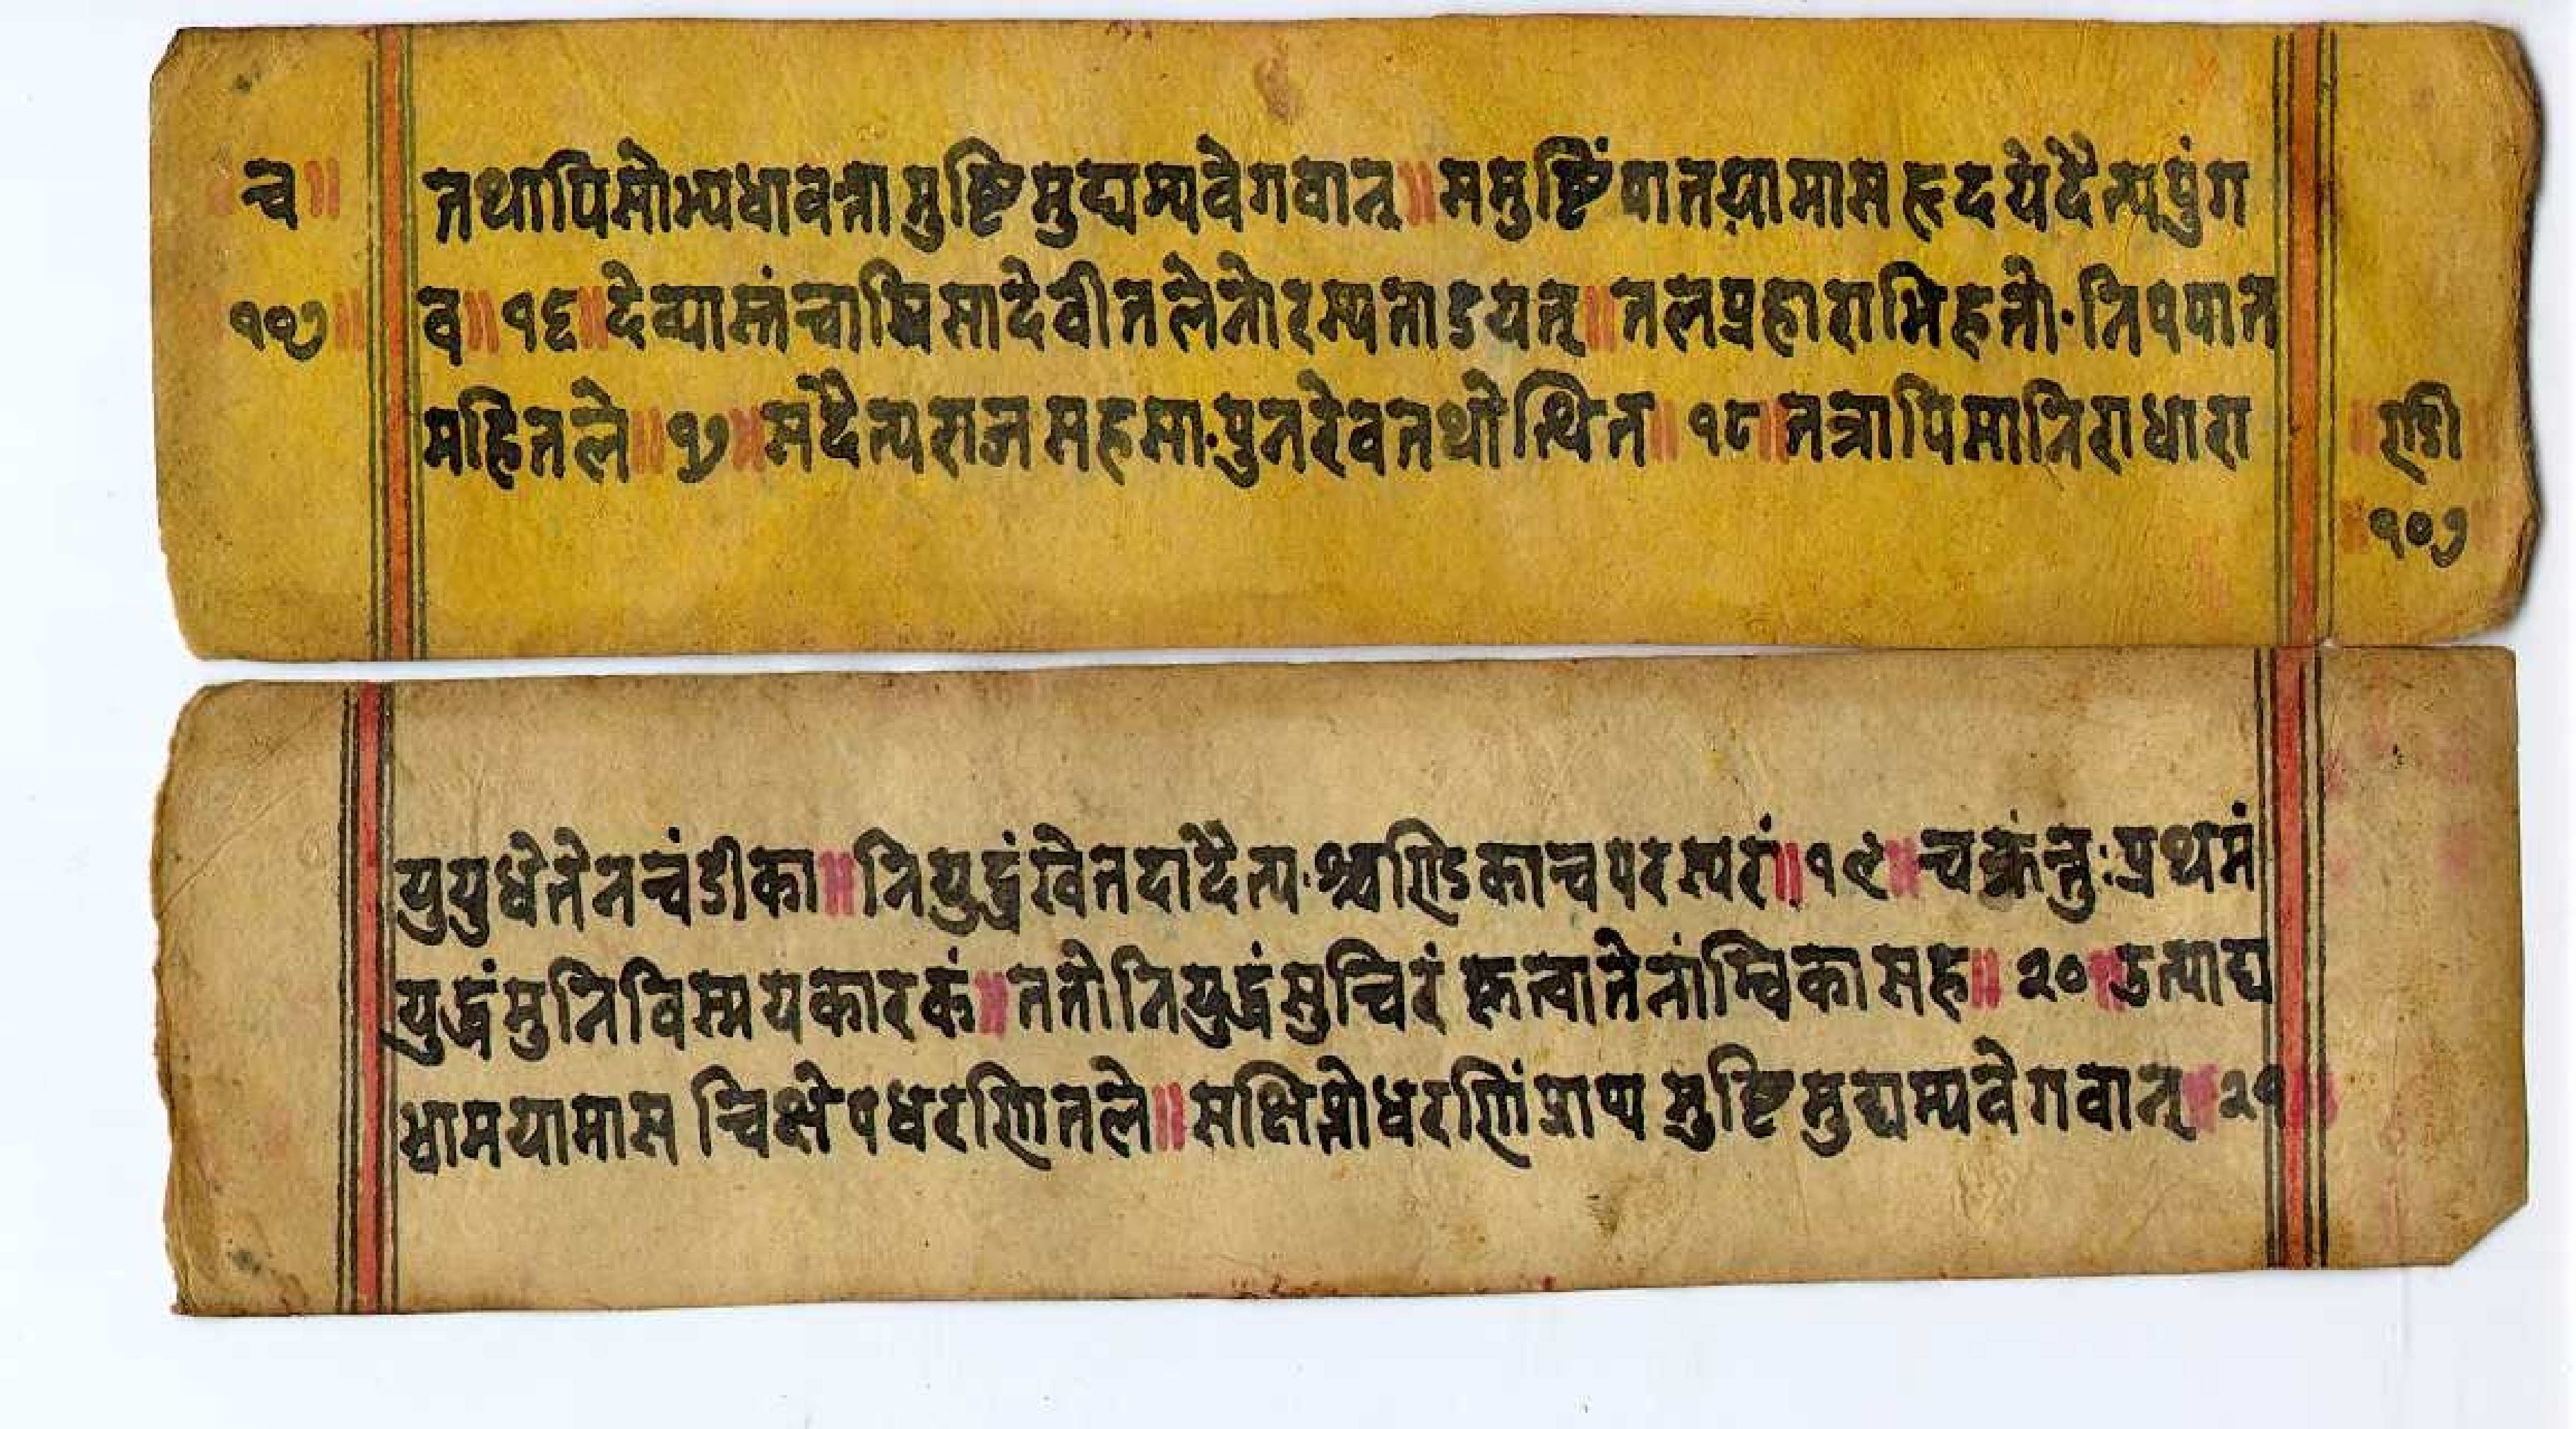 च॥
१०७॥
तथापिसोभ्यधावत्ता मुष्टिमुद्यम्यवेगवान्॥समुष्टिंपातयामासहृदयेदैत्यपुंग
व॥१६॥देव्यास्तंचापिसादेवीतलेनोरस्यताडयत्॥तलप्रहाराभिहतो.निपपात
महितले॥१७॥सदैत्यराजसहसा.पुनरेवतथोत्थित॥१८॥तत्रापिसानिराधारा
॥ण्डी॥
॥१०७
युयुधेतेनचंडीका॥नियुद्धंखेतदादैत्य.श्चण्डिकाचपरस्परं॥१९॥चक्रंतु:प्रथमं
युद्धंमुनिविस्मयकारकं॥ततोनियुद्धंसुचिरं कृत्वातेनांम्बिकासह॥२०॥उत्पाद्य
भ्रामयामास चिक्षेपधरणितले॥सक्षिप्तोधरणिंप्राप्य मुष्टिमुद्यम्यवेगवान्॥२१॥